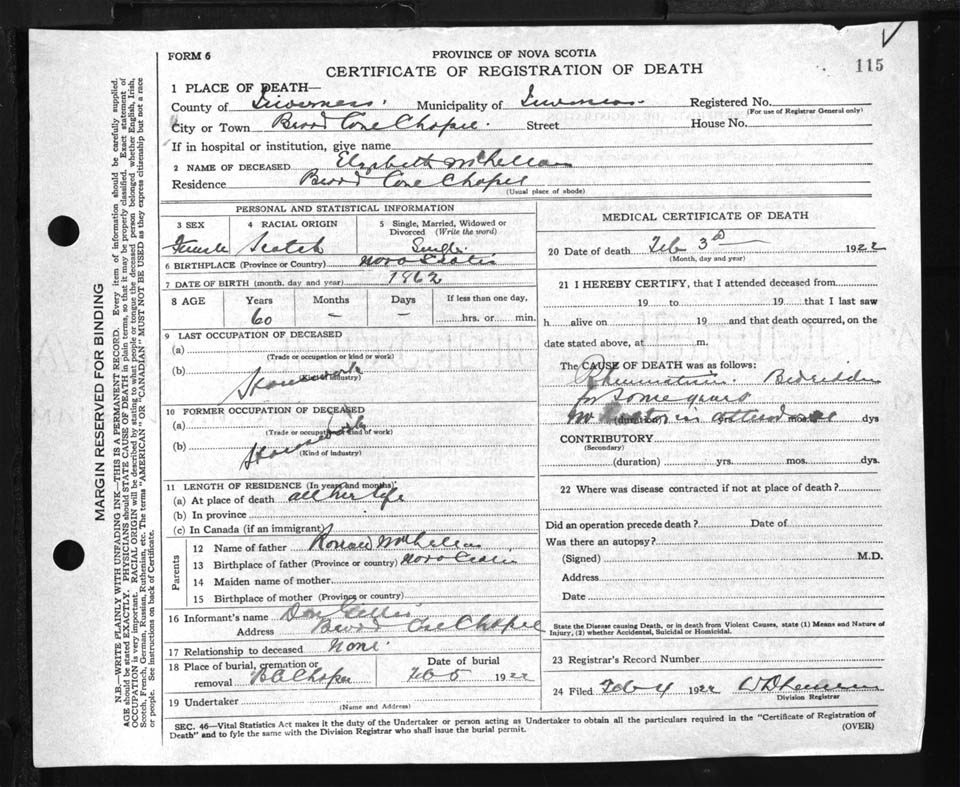 FORM 6
PROVINCE OF NOVA SCOTIA
CERTIFICATE OF REGISTRATION OF DEATH
115
1 PLACE OF DEATH—
County of Inverness. Municipality of Inverness. Registered No.
(For use of Registrar General only)
City or Town Broad Cove Chapel. Street House No.
If in hospital or institution, give name
2 NAME OF DECEASED Elizabeth McLellan
Residence Broad Cove Chapel
(Usual place of abode)
PERSONAL AND STATISTICAL INFORMATION
3 SEX 4 RACIAL ORIGIN 5 Single, Married, Widowed or Divorced (Write the word)
Female Scotch Single
6 BIRTHPLACE (Province or Country) Nova Scotia
7 DATE OF BIRTH (month, day and year) 1862
8 AGE Years Months Days If less than one day,
60 — — hrs. or min.
9 LAST OCCUPATION OF DECEASED
(a)
(Trade or occupation or kind or work)
(b) Housework
(Kind of Industry)
10 FORMER OCCUPATION OF DECEASED
(a)
(Trade or occupation or kind of work)
(b) Housework
(Kind of Industry)
11 LENGTH OF RESIDENCE (In years and months)
(a) At place of death all her life
(b) In province
(c) In Canada (if an immigrant)
Parents
12 Name of father Ronald McLellan
13 Birthplace of father (Province or country) Nova Scotia
14 Maiden name of mother
15 Birthplace of mother (Province or country)
16 Informant's name Dan Gillis
Address Broad Cove Chapel
17 Relationship to deceased None.
18 Place of burial, cremation or removal B C Chapel Date of burial Feb 5 1922
19 Undertaker
(Name and Address)
MEDICAL CERTIFICATE OF DEATH
20 Date of death Feb 3rd 1922
(Month, day and year)
21 I HEREBY CERTIFY, that I attended deceased from
19 to 19 that I last saw
h alive on 19 and that death occurred, on
date stated above, at m.
The CAUSE OF DEATH was as follows:
Rheumatism. Bedridden
for some years
No Doctor in attendance
(duration) yrs. mos. dys
CONTRIBUTORY
(Secondary)
(duration) yrs. mos. dys.
22 Where was disease contracted if not at place of death?
Did an operation precede death? Date of
Was there an autopsy?
(Signed) M.D.
Address
Date
State the Disease causing Death, or in death from Violent Causes, state (1) Means and Nature of Injury, (2) whether Accidental, Suicidal or Homicidal.
23 Registrar's Record Number
24 Filed Feb 4 1922
Division Registrar
SEC. 46—Vital Statistics Act makes it the duty of the Undertaker or person acting as Undertaker to obtain all the particulars required in the "Certificate of Registration of
Death" and to fyle the same with the Division Registrar who shall issue the burial permit. (OVER)
MARGIN RESERVED FOR BINDING
N.B.—WRITE PLAINLY WITH UNFADING INK—THIS IS A PERMANENT RECORD. Every item of information should be carefully supplied.
AGE should be stated EXACTLY. PHYSICIANS should STATE CAUSE OF DEATH in plain terms, so that it may be properly classified. Exact statement of
OCCUPATION is very important. RACIAL ORIGIN will be described by stating to what people or tongue the deceased person belonged whether English, Irish,
Scotch, French, German, Russian, Ruthenian, etc. The terms "AMERICAN" OR "CANADIAN" MUST NOT BE USED as they express citizenship but not a race
or people. See instructions on back of Certificate.